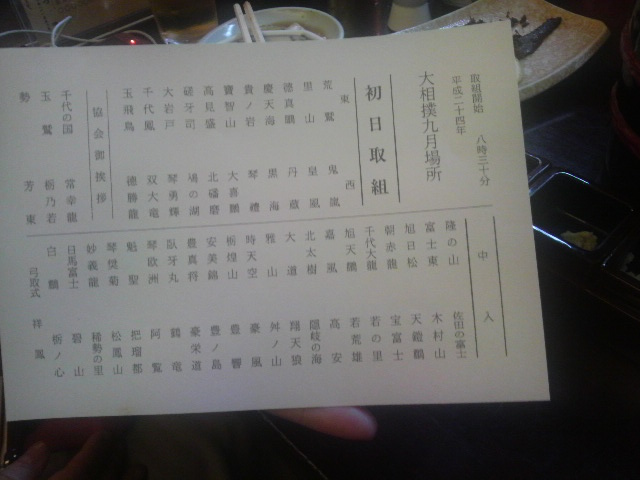 取組開始 八時三十分
平成二十四年
大相撲九月場所
初日取組
東 西
荒鷲 鬼嵐
里山 皇風
徳真鵬 丹蔵
慶天海 黒海
貴ノ岩 琴禮
寶智山 大喜鵬
高見盛 北磻磨
磋牙司 鳰の湖
大岩戸 琴勇輝
千代鳳 双大竜
玉飛鳥 徳勝龍
協会御挨拶
千代の国 常幸龍
玉鷲 栃乃若
勢 芳東
中入
隆の山 佐田の富士
富士東 木村山
旭日松 天鎧鵬
朝赤龍 宝富士
千代大龍 若の里
旭天鵬 若荒雄
嘉風 高安
北太樹 隠岐の海
大道 翔天狼
雅山 舛ノ山
時天空 豪風
栃煌山 豊響
安美錦 豊ノ島
豊真将 豪栄道
臥牙丸 鶴竜
琴欧洲 阿覧
魁聖 把瑠都
琴奨菊 松鳳山
妙義龍 稀勢の里
日馬富士 碧山
白鵬 栃ノ心
弓取式 祥鳳